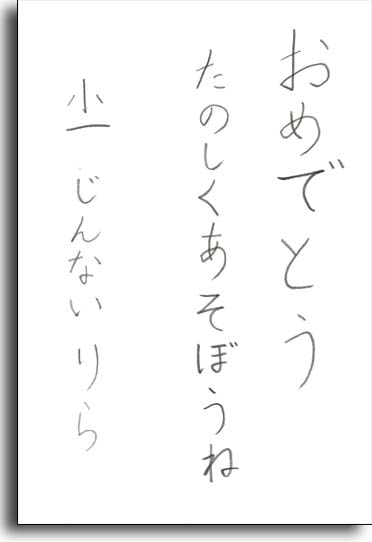 おめでとう
たのしくあそぼうね
小一 じんない りら